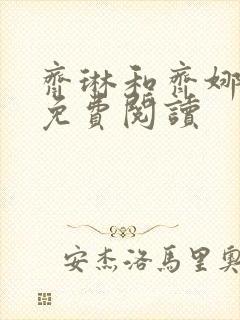 齊琳和齊娜
免費閱讀
安杰洛馬里奧